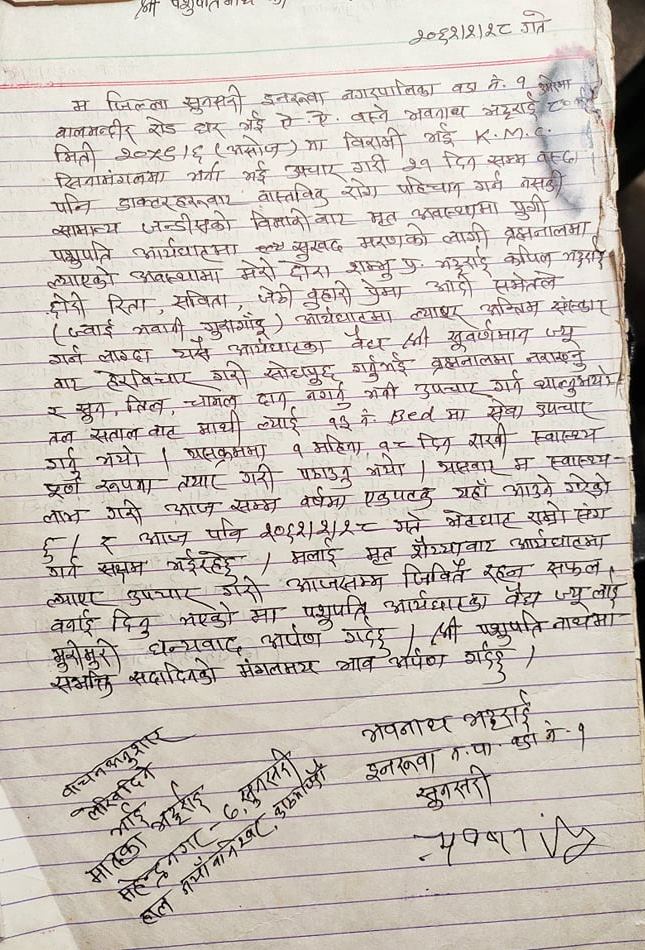 श्री पशुपतिनाथ
२०६२।२।२८ गते
म जिल्ला सुनसरी इनरूवा नगरपालिका वडा नं. १
बालमन्दीर रोड घर भई ऐ ऐ. बस्ने भवनाथ भट्टराई
मिती २०५९।६ (असोज) मा विरामी भई K.M.C.
सिनामंगलमा भर्ना भई उपचार गरी २१ दिन सम्म बस्दा
पनि डाक्टरहरूबाट वास्तविक रोग पहिचान गर्न नसकी
सामान्य जन्डीसको विमारीबाट मृत अवस्थामा पुगी
पशुपति आर्यघाटमा सुखद मरणको लागी ब्रह्मनालमा
ल्याएको अवस्थामा मेरो छोरा शम्भु प्र. भट्टराई कपिल भट्टराई
छोरी रिता, सविता, जेठी बुहारी प्रेमा आदी समेतले
(ज्वाई भवानी) आर्यघाटमा ल्याएर अन्तिम संस्कार
गर्न लाग्दा यसै आर्यघाटका वैद्य श्री सुवर्णमान ज्यू
बाट हेरविचार गरी सोधपुछ गर्नुभई ब्रह्मनालमा नराख्नु
र सुन, तिल, चामल दान नगर्नु भनी उपचार गर्न थाल्नुभयो।
तल सतालबाट माथी ल्याई १३ नं. Bed मा सेवा उपचार
गर्नु भयो। यसक्रममा १ महिना, १८ दिन राखी स्वास्थ्य
पूर्ण रूपमा तयार गरी पठाउनु भयो। यसबाट म स्वास्थ्य-
लाभ गरी आज सम्म वर्षमा एकपटक यहाँ आउने गरेको
छु। र आज पनि २०६२।२।२८ गते भेटघाट राम्रो संग
गर्न सक्षम भईरहेछु। मलाई मृत शैय्याबाट आर्यघाटमा
ल्याए उपचार गरी आजसम्म जिवितै रहन सफल
बनाई दिनु भएको मा पशुपति आर्यघाटका वैद्य ज्यू लाई
भुरीभुरी धन्यवाद अर्पण गर्दछु। श्री पशुपतिनाथमा
सदादिनको मंगलमय भाव अर्पण गर्दछु।
भवनाथ भट्टराई
इनरूवा न.पा. वडा नं - १
सुनसरी
वाचनअनुशार
लेखिदिने
भाई
भट्टराई
महेन्द्रनगर - ७, सुनसरी
हाल नयाँ वानेश्वर, काठमाण्डौ